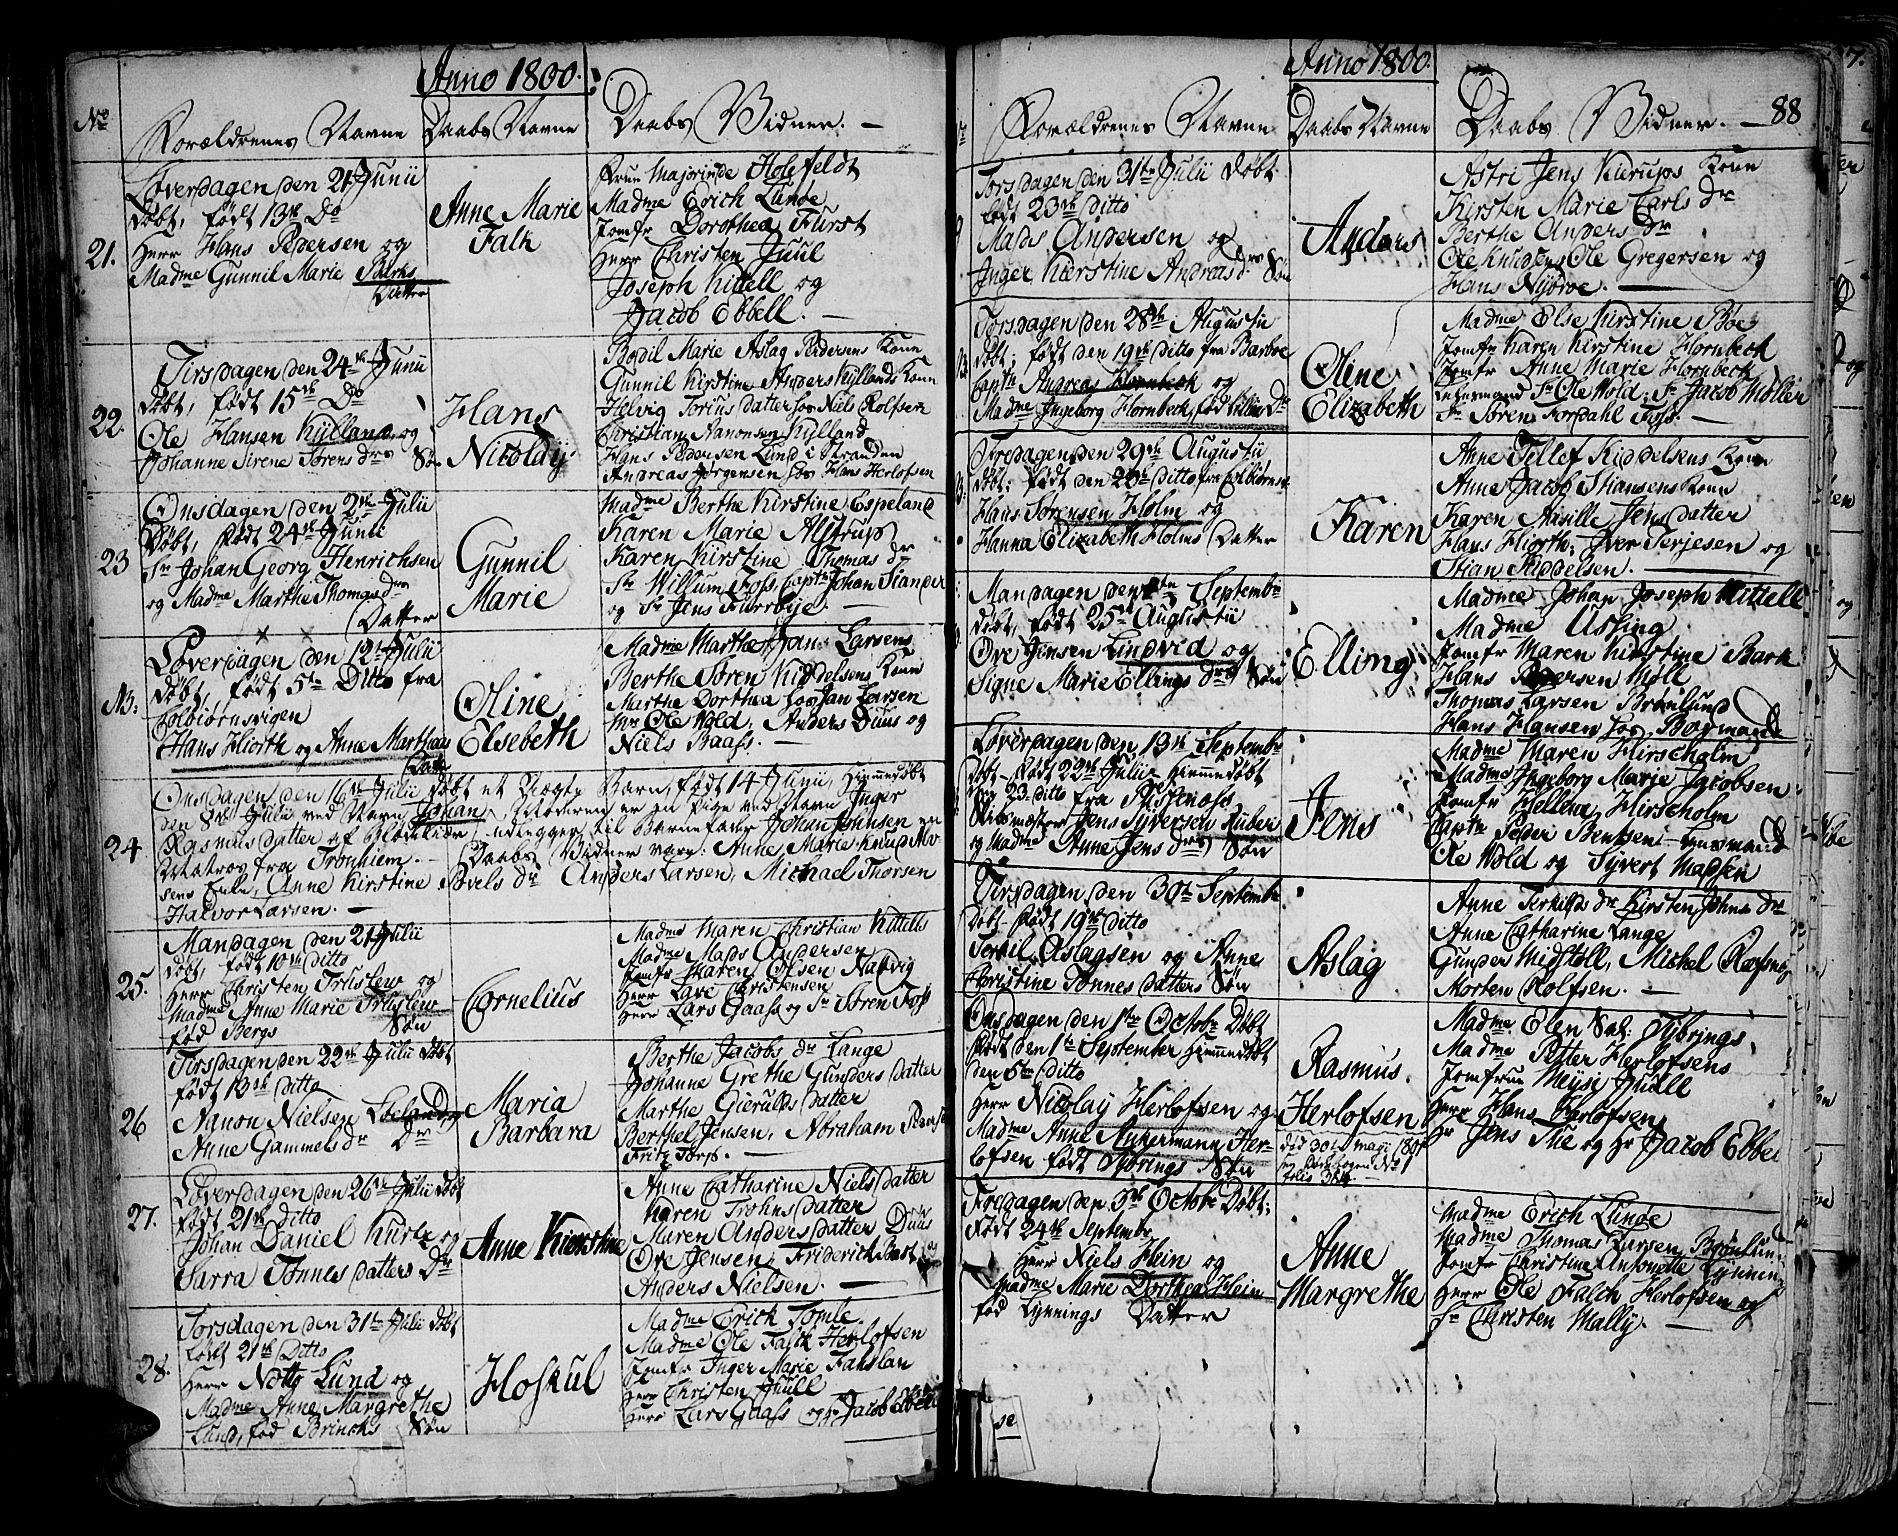 Anno 1800.
No
Forældrenes Navne
Daabs Navne
Daabs Vidner. —
21.
Løverdagen den 21 Junii
døbt, født 13de Do
Herr Hans Pedersen og
Madme Gunnil Marie Berks
Datter
Anne Marie
Falk
Frue Majorinde Holefeldt
Madme Erich Lunde
Jomfr Dorothea Furst
Herr Christen Juul
Joseph Kittell og
Jacob Ebbell. —
22.
Tirsdagen den 24de Junii
døbt, født 15de Do
Ole Hansen Kylland og
Johanne Sirene Sørens dr Søn
Hans
Nicolay
Bodil Marie Aslag Pedersens Kone
Gunnil Kirstine Anders Kyllands Kone
Helvig Torius datter for Niels Rolfsen
Christian Aanonsen Kylland
Hans Pedersen Lund i Stranden
Andreas Jørgensen for Hans Herlofsen
23
Onsdagen den 2de Julii
døbt, født 24de Junii
Sr Johan Georg Henrichsen
og Madme Marthe Thomas dr
Datter
Gunnil
Marie
Madme Berthe Kirstine Espeland
Karen Marie Alstrup
Karen Kirstine Thomas dr
Sr Willum Foss, Capt Johan Stander
og Sr Jens Furrbye. —
NB:
Løverdagen den 12te Julii
døbt, født 5te Ditto fra
Colbiørnsvigen
Hans Hiorth og Anne Marthaas
Datter
Oline
Elsebeth
Madme Marthe Jan Larsens
Berthe Søren Kiddelsens Kone
Marthe Dorthea for Jan Larsen
Mr Ole Wold. Anders Duus og
Niels Baass. —
24
Onsdagen den 16de Julii døbt et Uægte Barn, født 14 Junii, hiemmedøbt
den 8de Julii ved Navn Johan, Moderen er en Pige ved Navn Inger
Rasmus datter af udlegger til Barnefader Johan Johnsen en
Matros fra Tronhiem. — Daabs Vidner vare: Anne Marie Knud
sens Enke, Anne Kirstine Povels dr Anders Larsen, Michael Thorsen
Halvor Larsen. —
25.
Mandagen den 21 Julii
døbt, født 10de Ditto
Herr Christen Truslew og
Madme Anne Marie Truslew
fød Bergs Søn
Cornelius
Madme Maren Christian Kittells
Madme Mads Andersen
Jomfr Maren Olsen Nalevig
Herr Lave Christensen
Herr Lars Gaass og Sr Søren Foss
26
Tirsdagen den 22de Julii døbt
født 13de Ditto
Aanon Nielsen og
Anne Gammels dr Dr
Maria
Barbara
Berthe Jacobs dr Lange
Johanne Grethe Gunders datter
Marthe Gierulfs datter
Berthel Jensen, Abraham
Fritz Torp. —
27.
Løverdagen den 26de Julii døbt
født 21de Ditto
Johan Daniel Kurtz og
Sarra Tønnes datters Dr
Anne Kierstine
Anne Catharine Niels datter
Karen Trohns datter
Maren Anders datter Duus
Ove Jensen, Friderich Bast og
Anders Nielsen. —
28.
Torsdagen den 31te Julii døbt
født 21de Ditto
Herr Notto Lund og
Madme Anne Margrethe
Lund, fød Brincks Søn
Hoskul
Madme Erich Tomle.
Madme Ole Falck Herlofsen
Jomfr Inger Marie Fahslan
Herr Christen Juull
Herr Lars Gaass og Jacob Ebbell
Anno 1800.
88
Forældrenes Navne
Daabs Navne
Daabs Vidner. —
Torsdagen den 31te Julii døbt
født 23de Ditto
Mads Andersen og
Inger Kierstine Andreas dr Søn
Anders
Astri Jens Kierups Kone
Kirsten Marie Carls dr
Berthe Anders dr
Ole Knudsen, Ole Gregersen og
Hans Nybroe. —
Torsdagen den 28de Augustii
døbt; født den 19de Ditto fra Barboe
Captn Andreas Hornbeck og
Madme Ingeborg Hornbeck, fød Dr
Oline
Elizabeth
Madme Else Kirstine Boe
Jomfr Karen Kirstine Hornbeck
Jomfr Anne Marie Hornbeck
Sr Ole Wold; Sr Jacob Møller
Sr Søren Fossdahl Foss. —
Fredagen den 29de Augustii
døbt; født den 20de Ditto fra Colbiørns
Hans Sørensen Holm og
Hanna Elizabeth Holms Datter
Karen
Anne Tellef Kiddelsens Kone
Anne Jacob Thansens Kone
Karen Aasille Jens datter
Hans Hiorth; Iver Terjesen og
Stian Kiddelsen. —
Mandagen den 1te Septembr
døbt, født 25de Augustii
Ove Jensen Lindvid og
Signe Marie Ellings drs Søn
Elling
Madme Johan Joseph Kittell
Madme Usking
Jomfr Maren Kirstine Bark
Hans Møll
Thomas Larsen Brønlund
Hans Hansen for
Løverdagen den 13de Septembr
døbt — født 22de Julii hiemmedøbt
den 23 ditto fra
Skibmester Jens Syversen Kuber
og Madme Anne Jens drs Søn
Jens
Madme Maren Hirscholm
Madme Ingeborg Marie Jacobsen
Jomfr Hellena Hirscholm
Captn Peder Bentzen
Ole Wold og Syvert Madsen
Tirsdagen den 30te Septembr
døbt født 19de Ditto
Terkil Aslagsen og Anne
Christine Tønnes datters Søn
Aslag
Anne Terkilds dr Kirsten Johns dr
Anne Catharine Lange
Gunder Midstøll, Michel
Morten Rolfsen. —
Onsdagen den 1te Octobr døbt
født den 1te September hiemmedøbt
den 5te Ditto
Herr Nicolay Herlofsen og
Madme Anne Ankermann Her-
lofsen født Dybrings Søn
Rasmus
Herlofsen
død 30te maji 1801
Madme Elen Sal: Dybrings
Madme Petter Herlofsens
Jomfrue Meyse Juell
Herr Hans Herlofsen
Hr Jens The og Hr Jacob Ebbel
Fredagen den 3de Octobr døbt,
født 24de Septembr
Herr Niels Hein og
Madme Marie Dorthea Hein
fød Lynnings Datter
Anne
Margrethe
Madme Erich Lunde
Madme Thomas Larsen Brønlun
Jomfr Christine Antonette Lynning
Herr Ole Falch Herlofsen og
Sr Christen Wally. —